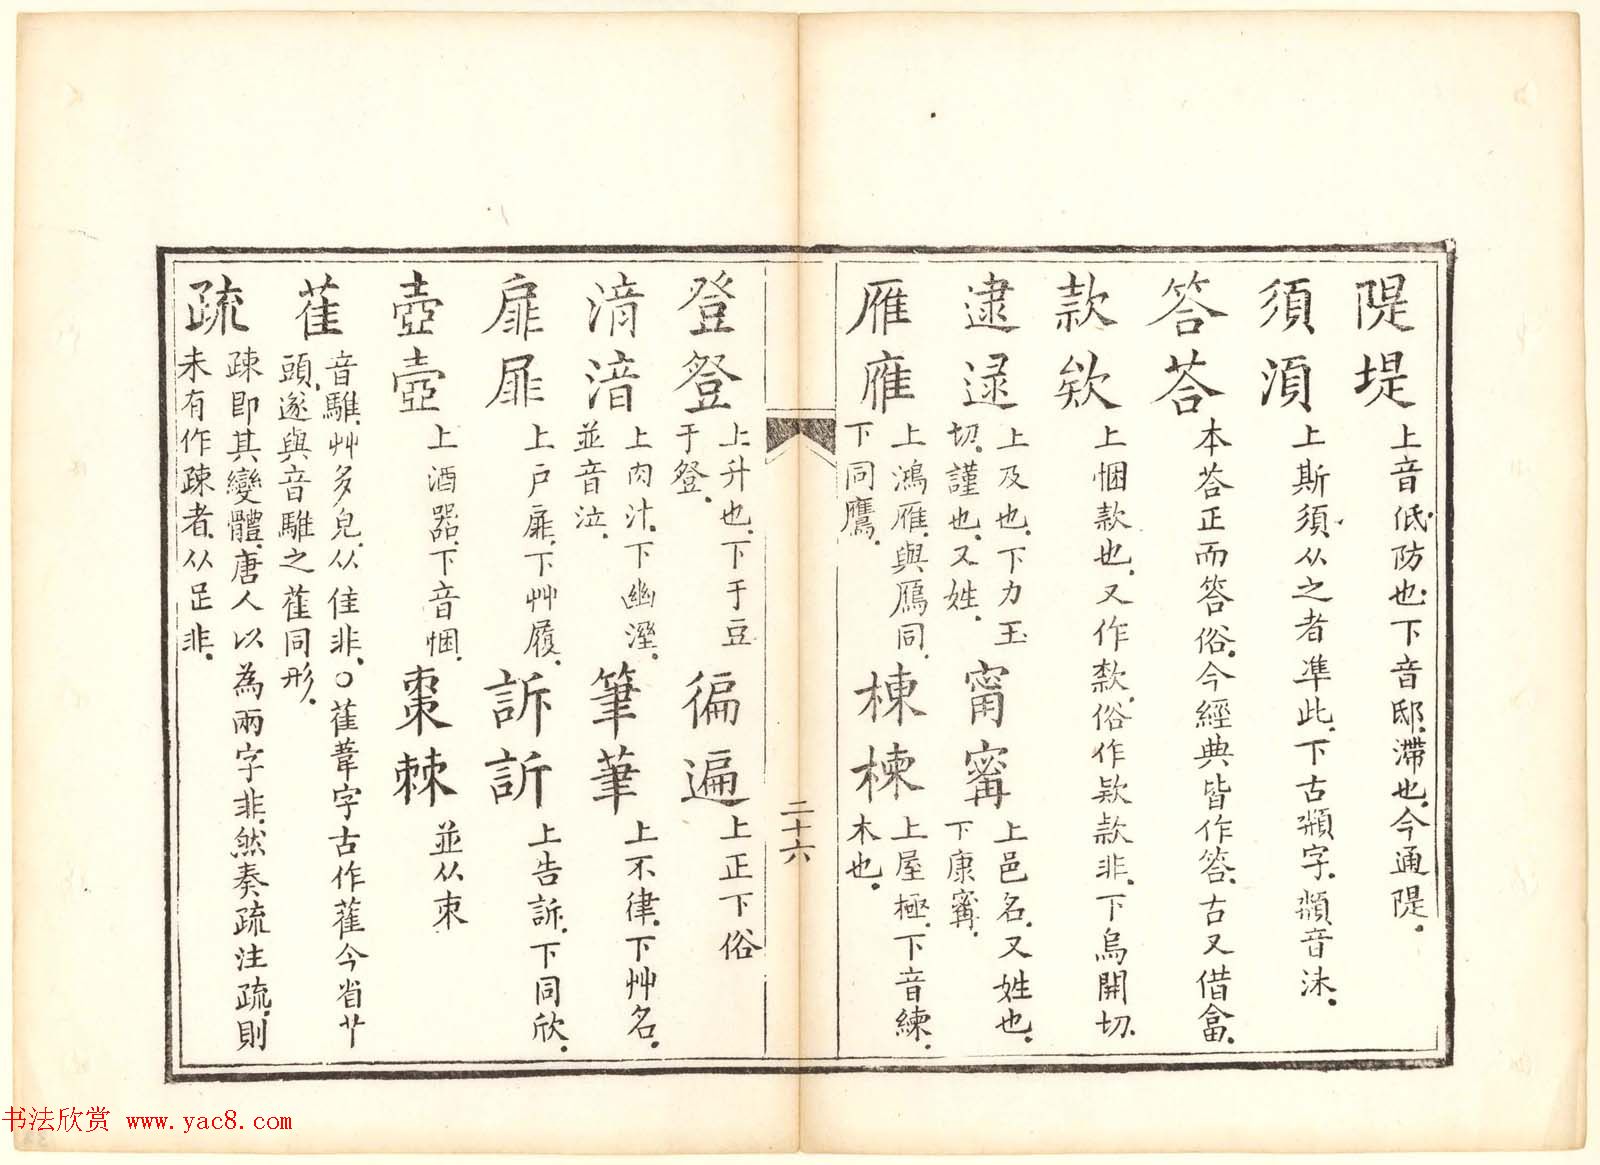 隄堤上音低防也下音邸滯也今通隄
須湏上斯須从之者準此下古頮字頮音沬
答荅本荅正而答俗今經典皆作答古又借畣
款欸上悃款也又作欵俗作欵款非下烏開切
逮逯上及也下力玉切謹也又姓
甯寗上邑名又姓也下康寗
雁鴈上鴻雁與鴈同下同鷹
棟楝上屋極下音練木也
二十六
登豋上升也下于豆于豋
徧遍上正下俗
湇湆上肉汁下幽溼並音泣
筆茟上不律下艸名
扉屝上戶扉下艸履
訴訢上告訴下同欣
壺壼上酒器下音悃
棗棘並从朿
萑音騅艸多皃从隹非○萑葦字古作雈今省艹頭遂與音騅之萑同形
疏疎即其變體唐人以為兩字非然奏疏注疏則未有作疎者从𤴔非
书法欣赏 www.yac8.com